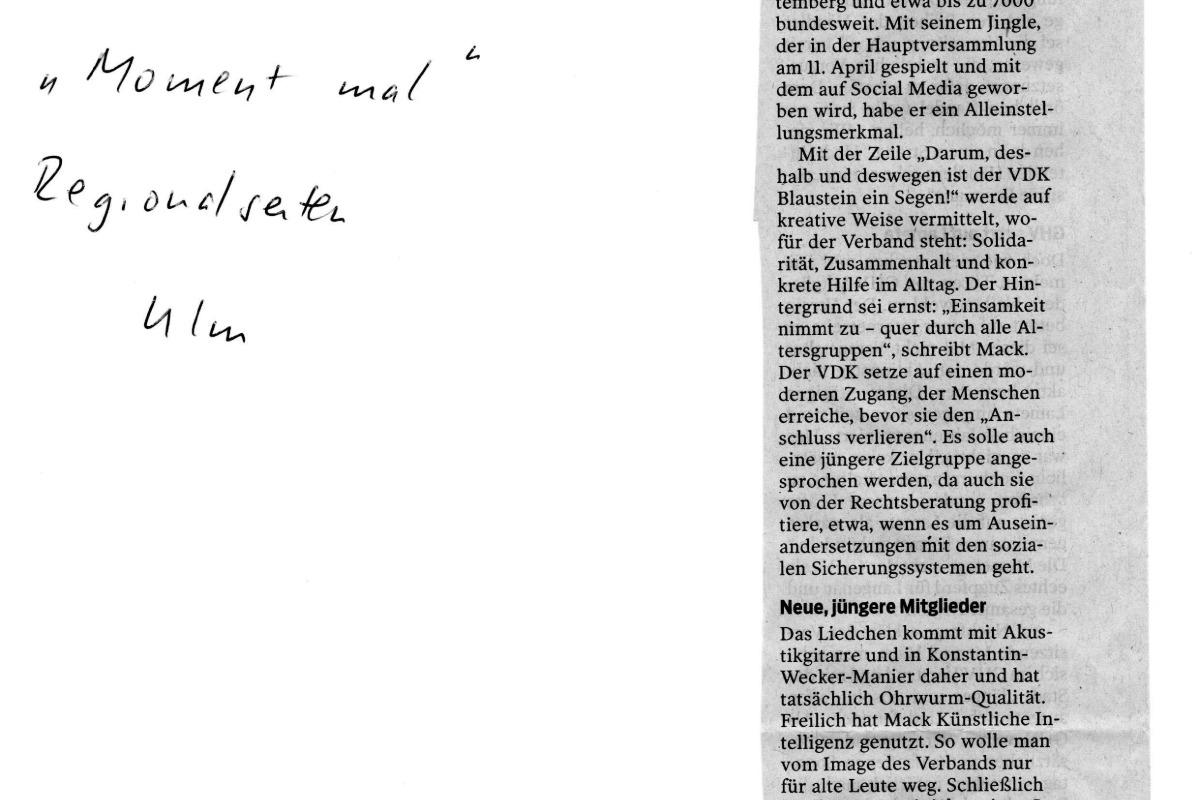 „Moment mal“
Regionalseiten
Ulm
temberg und etwa bis zu 7000
bundesweit. Mit seinem Jingle,
der in der Hauptversammlung
am 11. April gespielt und mit
dem auf Social Media gewor-
ben wird, habe er ein Alleinstel-
lungsmerkmal.
Mit der Zeile „Darum, des-
halb und deswegen ist der VDK
Blaustein ein Segen!“ werde auf
kreative Weise vermittelt, wo-
für der Verband steht: Solida-
rität, Zusammenhalt und kon-
krete Hilfe im Alltag. Der Hin-
tergrund sei ernst: „Einsamkeit
nimmt zu – quer durch alle Al-
tersgruppen“, schreibt Mack.
Der VDK setze auf einen mo-
dernen Zugang, der Menschen
erreiche, bevor sie den „An-
schluss verlieren“. Es solle auch
eine jüngere Zielgruppe ange-
sprochen werden, da auch sie
von der Rechtsberatung profi-
tiere, etwa, wenn es um Ausein-
andersetzungen mit den sozia-
len Sicherungssystemen geht.
Neue, jüngere Mitglieder
Das Liedchen kommt mit Akus-
tikgitarre und in Konstantin-
Wecker-Manier daher und hat
tatsächlich Ohrwurm-Qualität.
Freilich hat Mack Künstliche In-
telligenz genutzt. So wolle man
vom Image des Verbands nur
für alte Leute weg. Schließlich